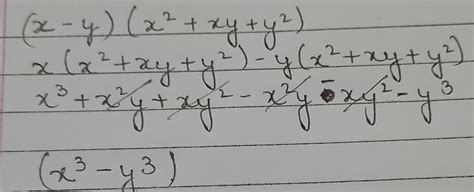 (x - y) (x² + xy + y²)
x (x² + xy + y²) - y (x² + xy + y²)
x³ + x²y + xy² - x²y - xy² - y³
(x³ - y³)